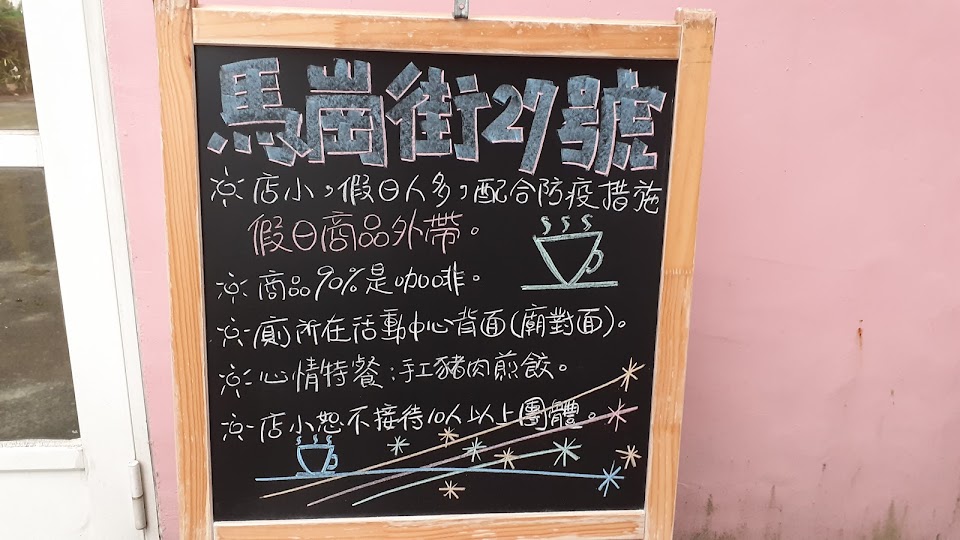 馬崗街27號
店小，假日人多，配合防疫措施
假日商品外帶。
商品90%是咖啡。
廁所在活動中心背面(廟對面)。
心情特餐:手工豬肉煎餃。
店小恕不接待10人以上團體。